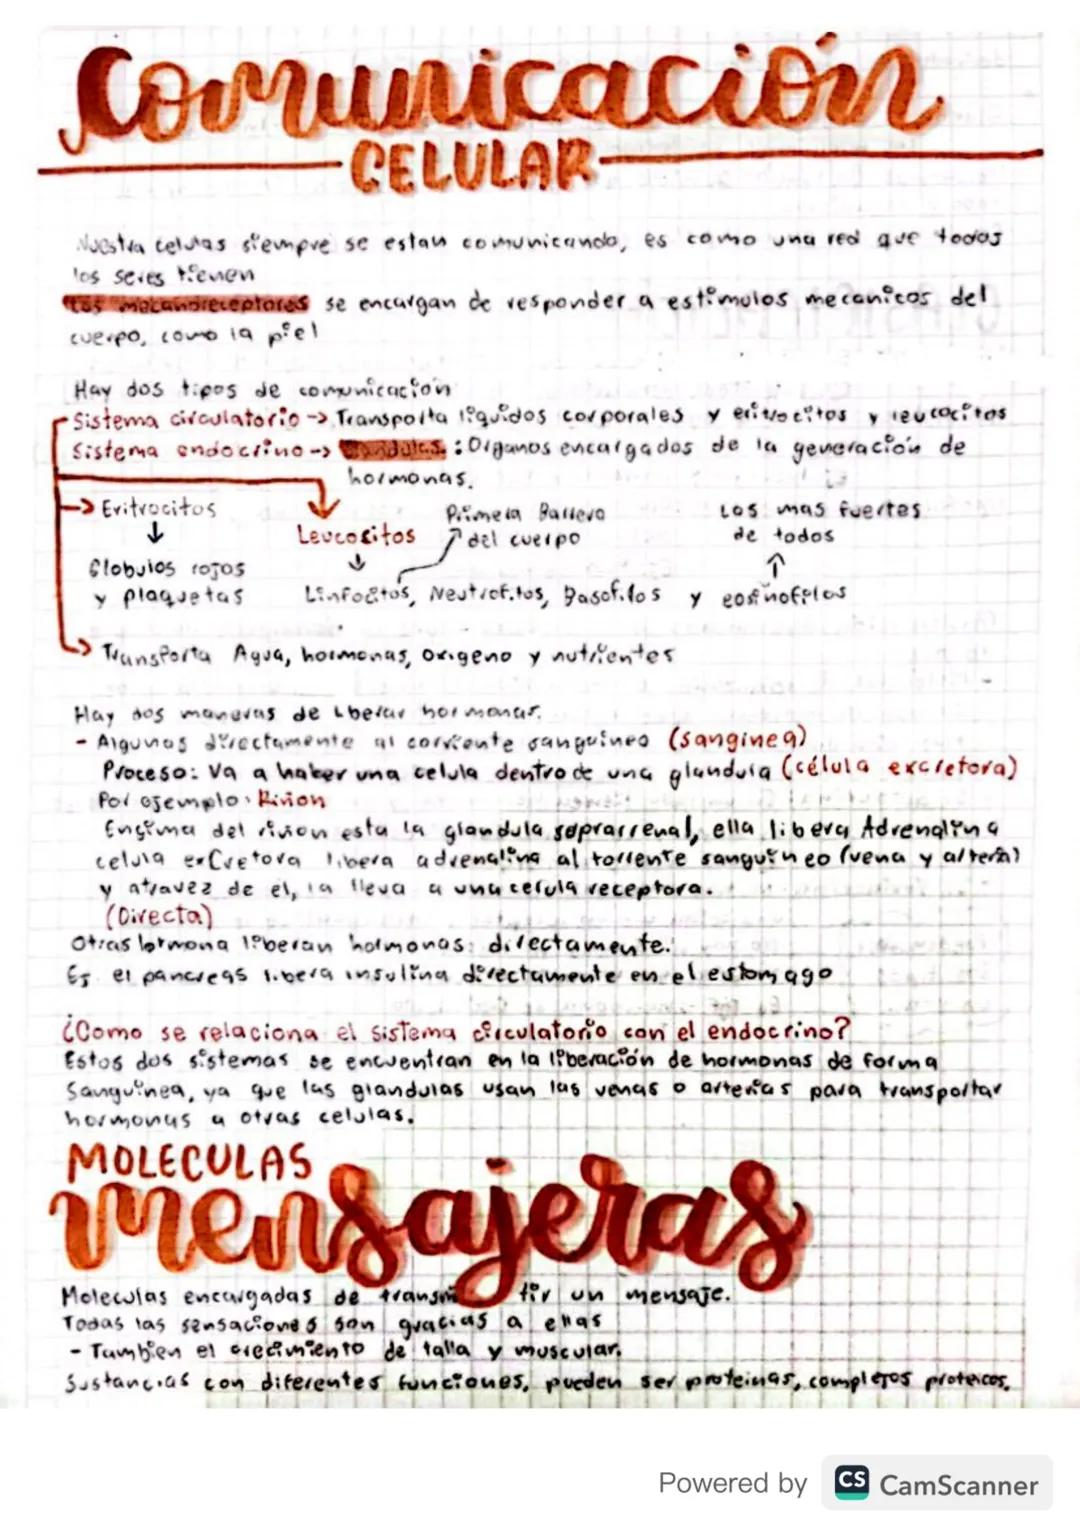 Comunicación
CELULAR
Nuestra celulas siempre se estan comunicando, es como una red que todos
los seres tienen
Los mecanoreceptores se encargan de responder a estimulos mecanicos del
cuerpo, como la piel
Hay dos tipos de comunicación
Sistema circulatorio -> Transporta liquidos corporales y eritrocitos y leucocitos
Sistema endocrino -> Glandulas : Organos encargados de la generación de
hormonas.
-> Eritrocitos
Primera Barrera
Los mas fuertes
Leucocitos
del cuerpo
de todos
Globulos rojos
y plaquetas
Linfocitos, Neutrofilos, Basofilos y eosinofilos
Transporta Agua, hormonas, oxigeno y nutrientes
Hay dos maneras de liberar hormonas.
- Algunas directamente al corriente sanguineo (sanginea)
Proceso: Va a haber una celula dentro de una glandula (célula excretora)
Por ejemplo: Riñon
Encima del riñon esta la glandula soprarrenal, ella libera Adrenalina
celula exCretora libera adrenalina al torrente sanguineo (vena y arteria)
y atravez de el, la lleva a una celula receptora.
(Directa)
Otras hormona liberan hormonas directamente.
Ej el pancreas libera insulina directamente en el estomago
¿Como se relaciona el sistema circulatorio con el endocrino?
Estos dos sistemas se encuentran en la liberación de hormonas de forma
Sanguinea, ya que las glandulas usan las venas o arterias para transportar
hormonas a otras celulas.
MOLECULAS
mensajeras
Moleculas encargadas de transmitir un mensaje.
Todas las sensaciones son gracias a ellas
- Tambien el crecimiento de talla y muscular.
Sustancias con diferentes funciones, pueden ser proteinas, complejos proteicos,
Powered by CS CamScanner